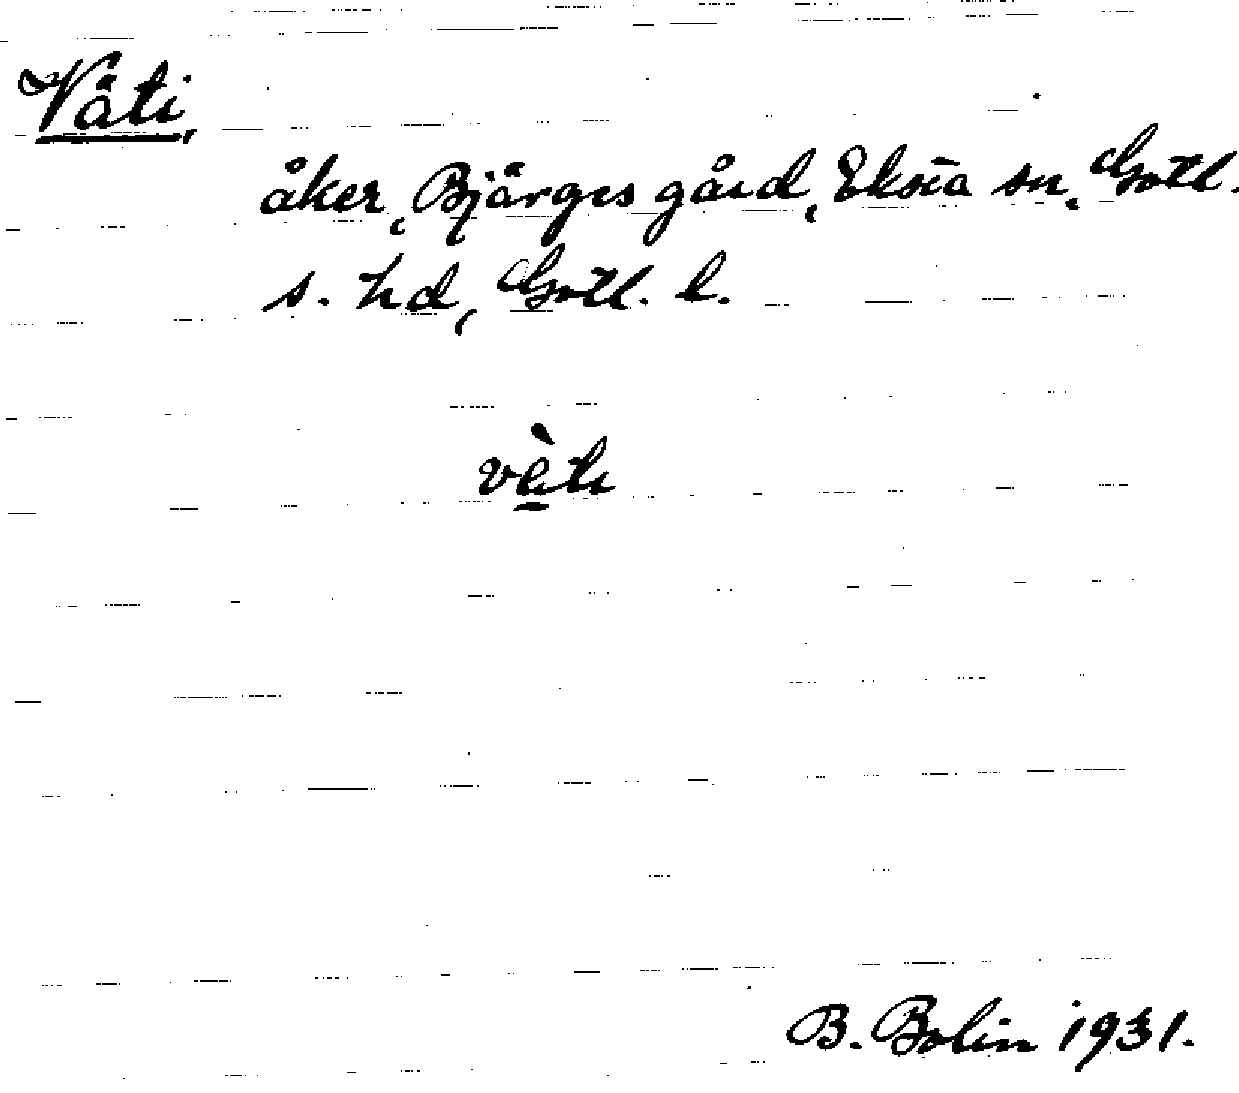 Väti,
åker, Bjärges gård, Eksta sn, Gotl.
s. hd, Gotl. l.
vè̱ti
B. Bolin 1931.